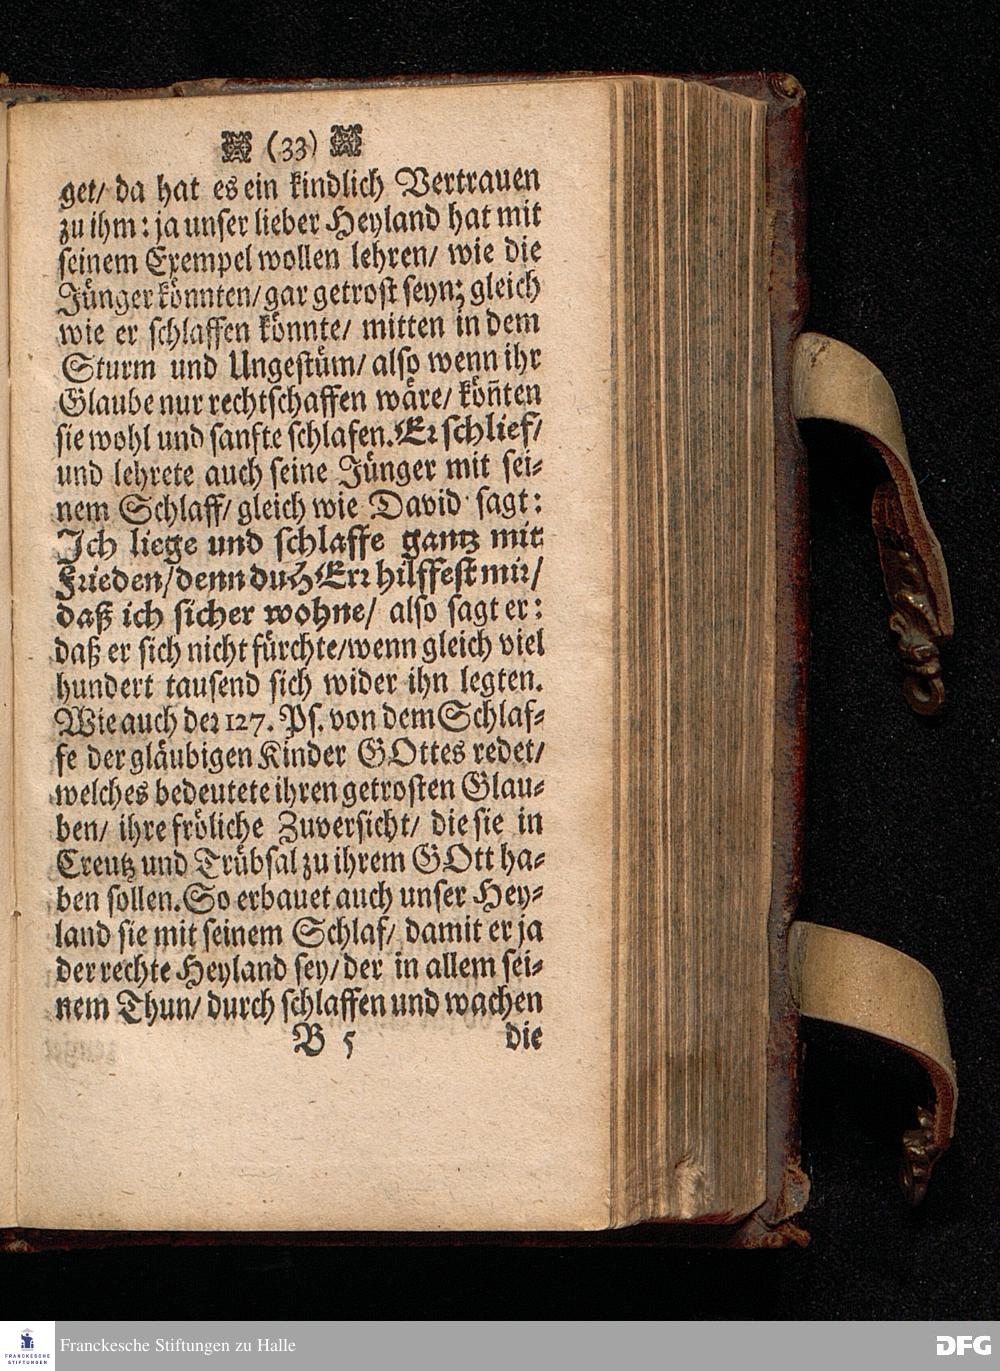 (33)
get/ da hat es ein kindlich Vertrauen
zu ihm: ja unser lieber Heyland hat mit
seinem Exempel wollen lehren/ wie die
Jünger könnten/ gar getrost seyn; gleich
wie er schlaffen könnte/ mitten in dem
Sturm und Ungestüm/ also wenn ihr
Glaube nur rechtschaffen wäre/ köñten
sie wohl und sanfte schlafen. Er schlief/
und lehrete auch seine Jünger mit sei-
nem Schlaff/ gleich wie David sagt:
Ich liege und schlaffe gantz mit
Frieden/ denn du HErr hilffest mir/
daß ich sicher wohne/ also sagt er:
daß er sich nicht fürchte/ wenn gleich viel
hundert tausend sich wider ihn legten.
Wie auch der 127. Ps. von dem Schlaf-
fe der gläubigen Kinder GOttes redet/
welches bedeutete ihren getrosten Glau-
ben/ ihre fröliche Zuversicht/ die sie in
Creutz und Trübsal zu ihrem GOtt ha-
ben sollen. So erbauet auch unser Hey-
land sie mit seinem Schlaf/ damit er ja
der rechte Heyland sey/ der in allem sei-
nem Thun/ durch schlaffen und wachen
B 5 die
FRANCKESCHE STIFTUNGEN
Franckesche Stiftungen zu Halle
DFG